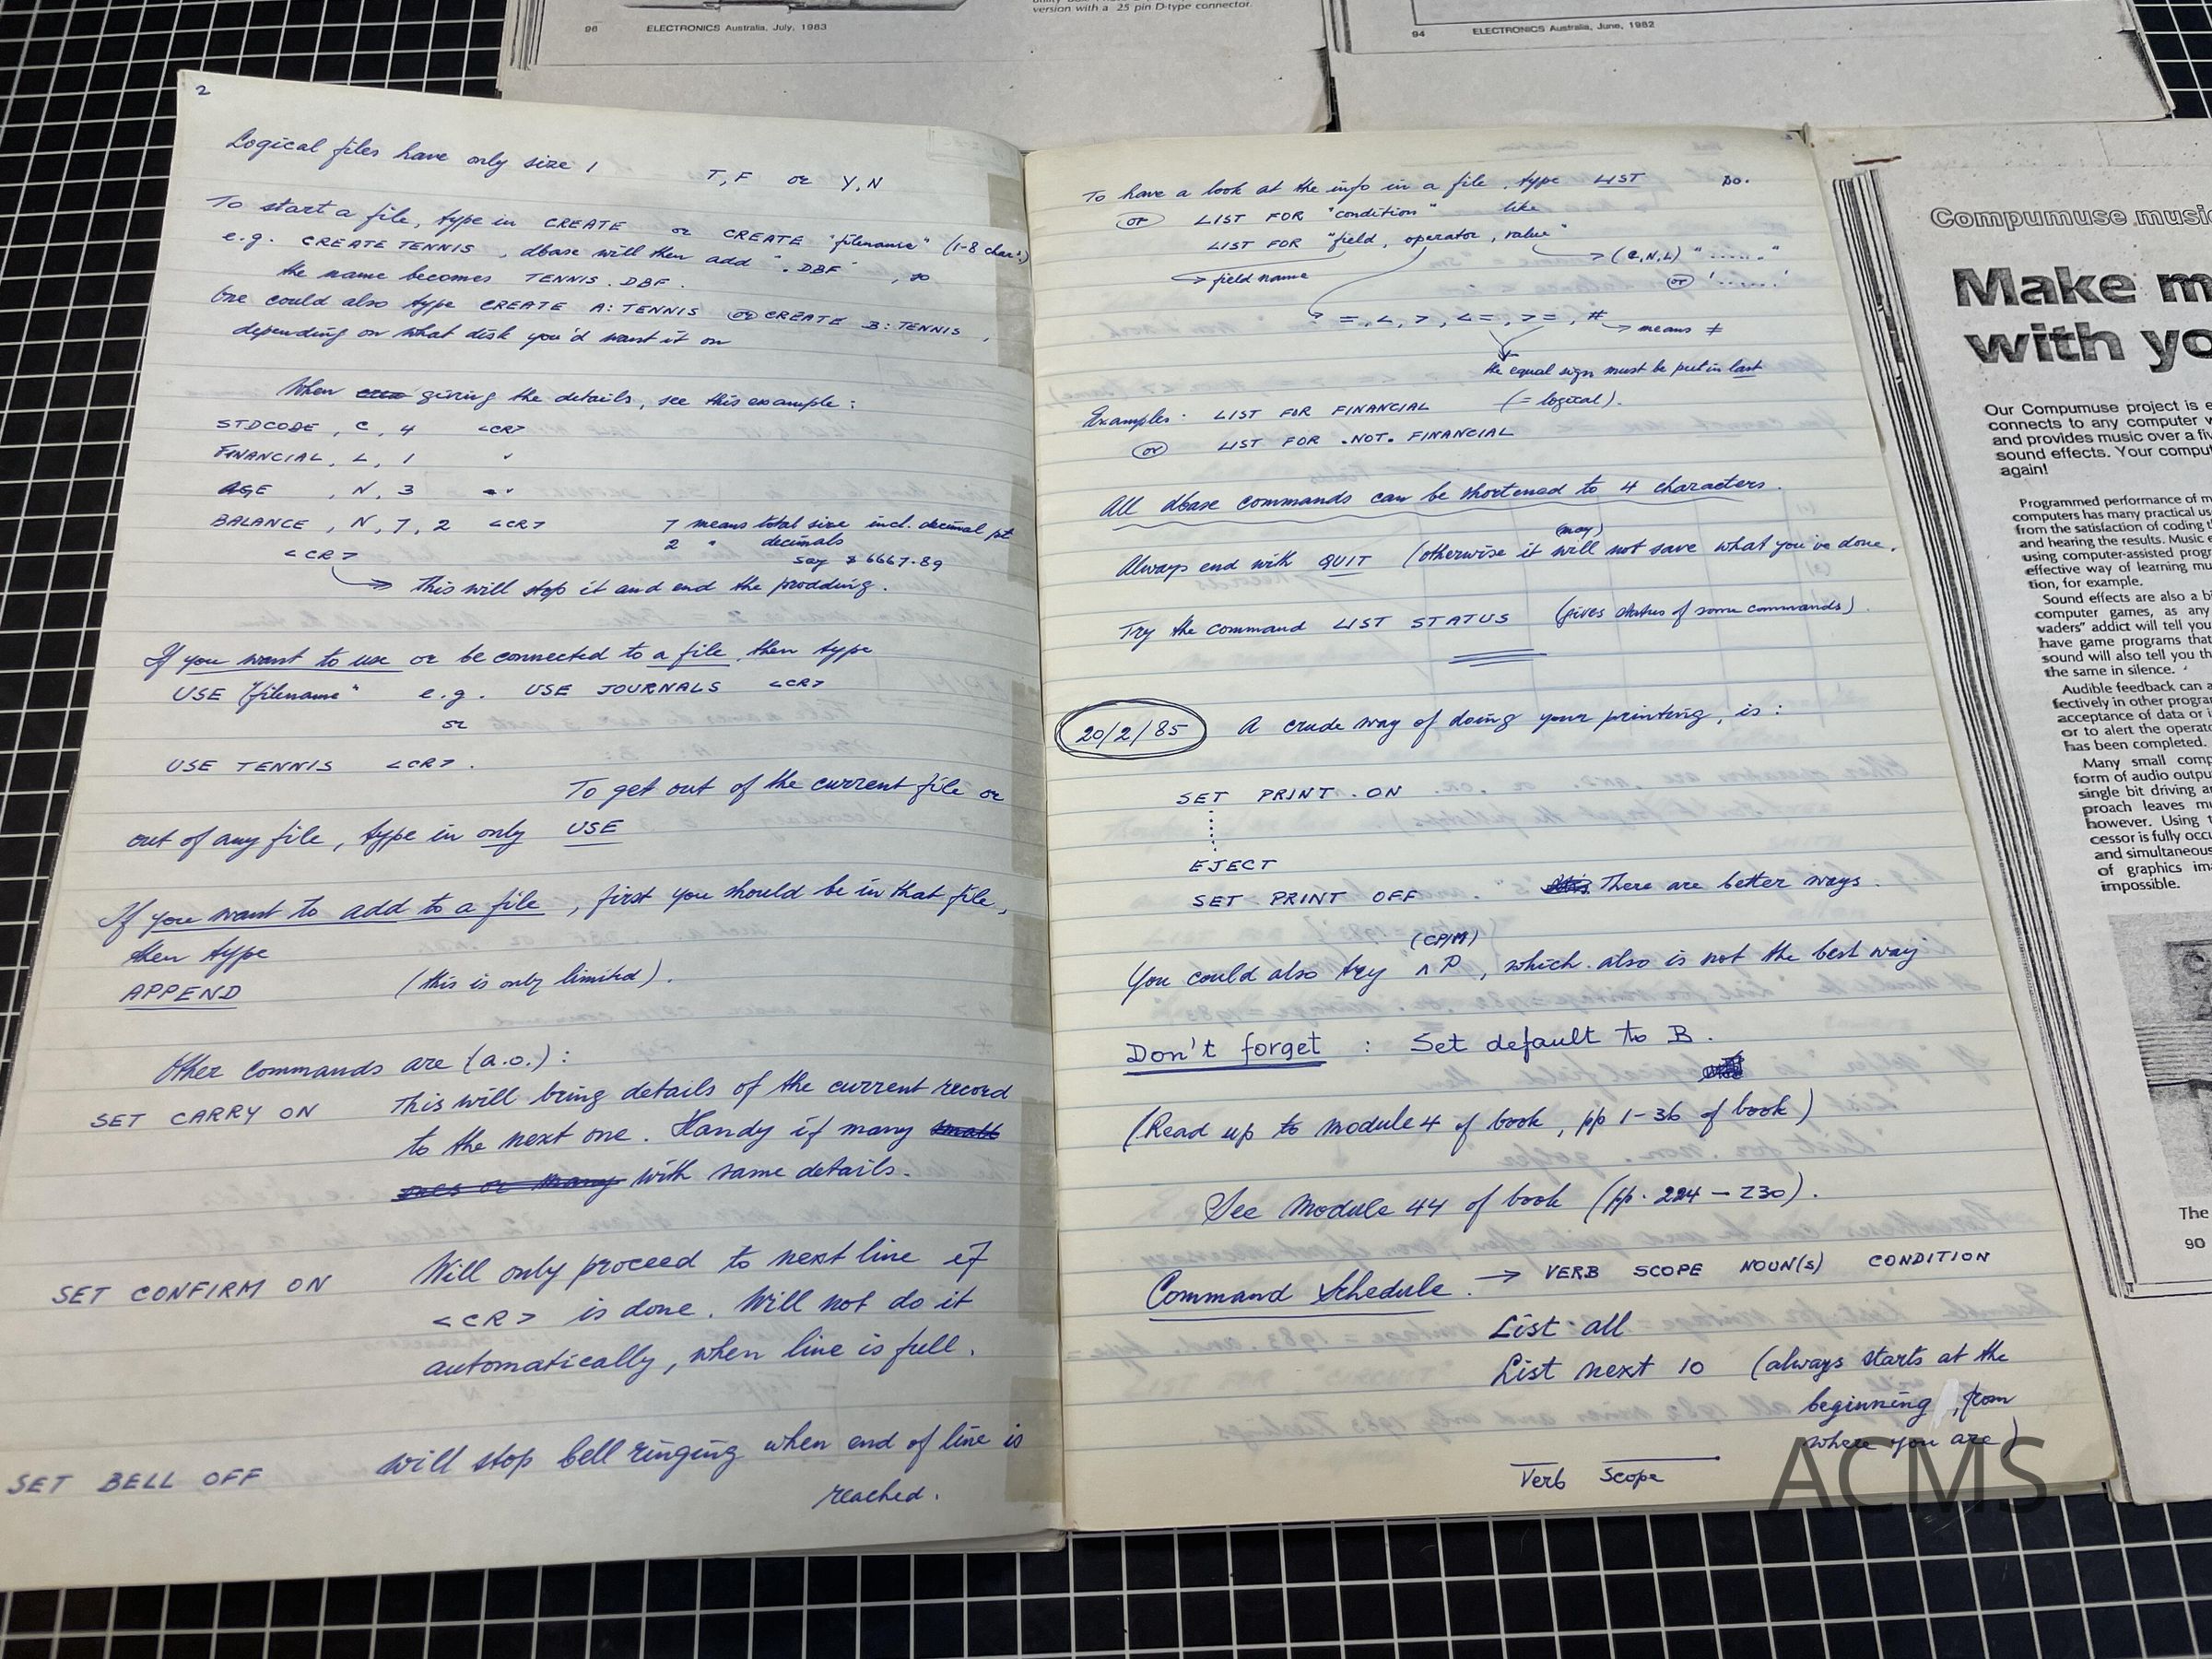 version with a 25 pin D-type connector.
96 ELECTRONICS Australia, July, 1983
94 ELECTRONICS Australia, June, 1982
2
Logical files have only size 1 T,F or Y,N
To start a file, type in CREATE or CREATE "filename" (1-8 char.)
e.g. CREATE TENNIS, dbase will then add ".DBF", so
the name becomes TENNIS.DBF.
One could also type CREATE A:TENNIS or CREATE B:TENNIS,
depending on what disk you'd want it on
When giving the details, see this example:
STDCODE, C, 4 <CR>
FINANCIAL, L, 1 "
AGE , N, 3 "
BALANCE, N, 7, 2 <CR> 7 means total size incl. decimal pt
2 " decimals
<CR> say $ 6667.89
→ this will stop it and end the prodding.
If you want to use or be connected to a file, then type
USE "filename" e.g. USE JOURNALS <CR>
or
USE TENNIS <CR>.
To get out of the current file or
out of any file, type in only USE
If you want to add to a file, first you should be in that file,
then type
APPEND (this is only limited).
Other commands are (a.o.):
SET CARRY ON This will bring details of the current record
to the next one. Handy if many small
ones or many with same details.
SET CONFIRM ON Will only proceed to next line if
<CR> is done. Will not do it
automatically, when line is full.
SET BELL OFF will stop bell ringing when end of line is
reached.
To have a look at the info in a file, type LIST DO.
or LIST FOR "condition" like
LIST FOR "field, operator, value"
→ field name → (C,N,L) "......"
or '......'
=, <, >, <=, >=, # → means ≠
the equal sign must be put in last
Examples: LIST FOR FINANCIAL (= logical).
or LIST FOR .NOT. FINANCIAL
All dbase commands can be shortened to 4 characters.
(may)
Always end with QUIT (otherwise it will not save what you've done.
Try the command LIST STATUS (gives status of some commands).
20/2/85 A crude way of doing your printing, is:
SET PRINT ON
EJECT
SET PRINT OFF. There are better ways.
(CP/M)
You could also try ^P, which also is not the best way
Don't forget : Set default to B.
(Read up to module 4 of book, pp 1-36 of book)
See Module 44 of book (pp. 224 - 230).
Command Schedule. → VERB SCOPE NOUN(S) CONDITION
List all
List next 10 (always starts at the
beginning, from
where you are)
Verb Scope
Compumuse music
Make m
with yo
Our Compumuse project is e
connects to any computer w
and provides music over a fiv
sound effects. Your comput
again!
Programmed performance of m
computers has many practical us
from the satisfaction of coding t
and hearing the results. Music e
using computer-assisted progr
effective way of learning mu
tion, for example.
Sound effects are also a bi
computer games, as any
vaders" addict will tell you
have game programs that
sound will also tell you th
the same in silence.
Audible feedback can a
fectively in other progra
acceptance of data or i
or to alert the operato
has been completed.
Many small comp
form of audio outpu
single bit driving a
proach leaves mu
however. Using t
cessor is fully occu
and simultaneous
of graphics ima
impossible.
The
90
ACMS